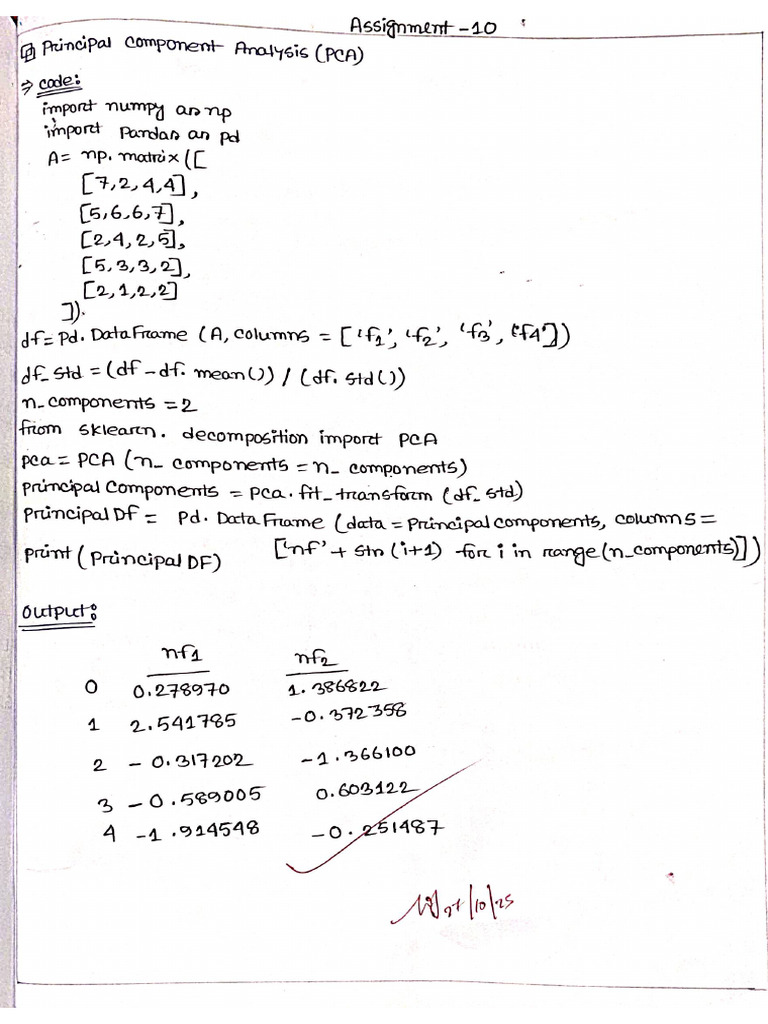 Assignment - 10
Principal Component Analysis (PCA)
⇒ code:
import numpy as np
import Pandas as pd
A = np. matrix ([
[7,2,4,4],
[5,6,6,7],
[2,4,2,5],
[5,3,3,2],
[2,1,2,2]
]).
df = Pd. DataFrame (A, columns = ['f1', 'f2', 'f3', 'f4'])
df_std = (df - df. mean()) / (df. std())
n_components = 2
from sklearn. decomposition import PCA
pca = PCA (n_ components = n_ components)
Principal Components = pca. fit_transform (df_std)
Principal Df = Pd. DataFrame (data = Principal components, columns =
['nf' + str (i+1) for i in range (n_components)])
print (Principal DF)
Output:
nf1 nf2
0 0.278970 1.386822
1 2.541785 -0.372358
2 - 0.317202 -1.366100
3 - 0.589005 0.603122
4 -1.914548 -0.251487
27/10/25